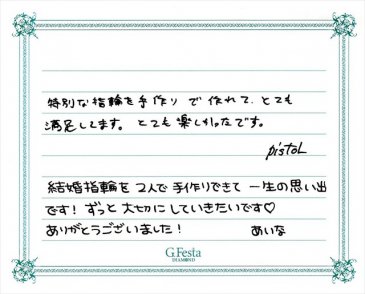 特別な指輪を手作りで作れて、とても
満足してます。とても楽しかったです。
pistol
結婚指輪を2人で手作りできて 一生の思い出
です！ずっと大切にしていきたいです♡
ありがとうございました！ あいな
G.Festa
DIAMOND